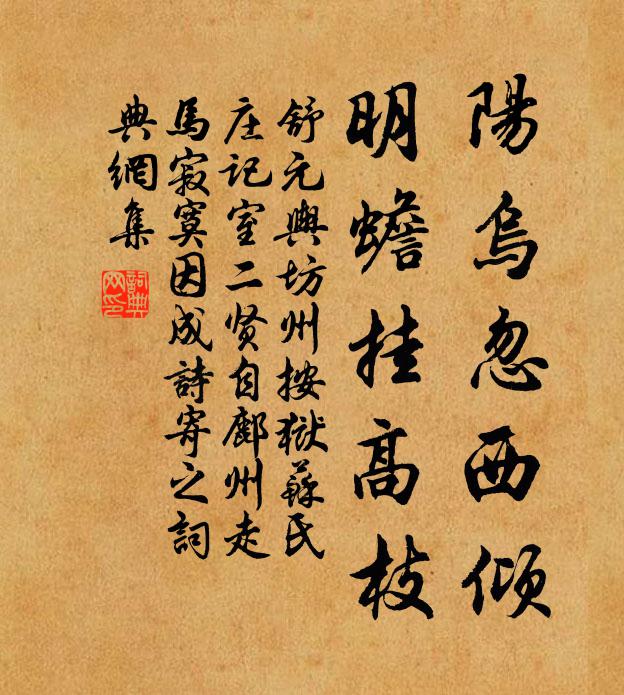 陽烏忽西傾
明蟾挂高枝
舒元輿坊州按獄蘇氏
庄记室二贤自鄜州走
馬寂寞因成詩寄之詞
典網集
詞典
网印